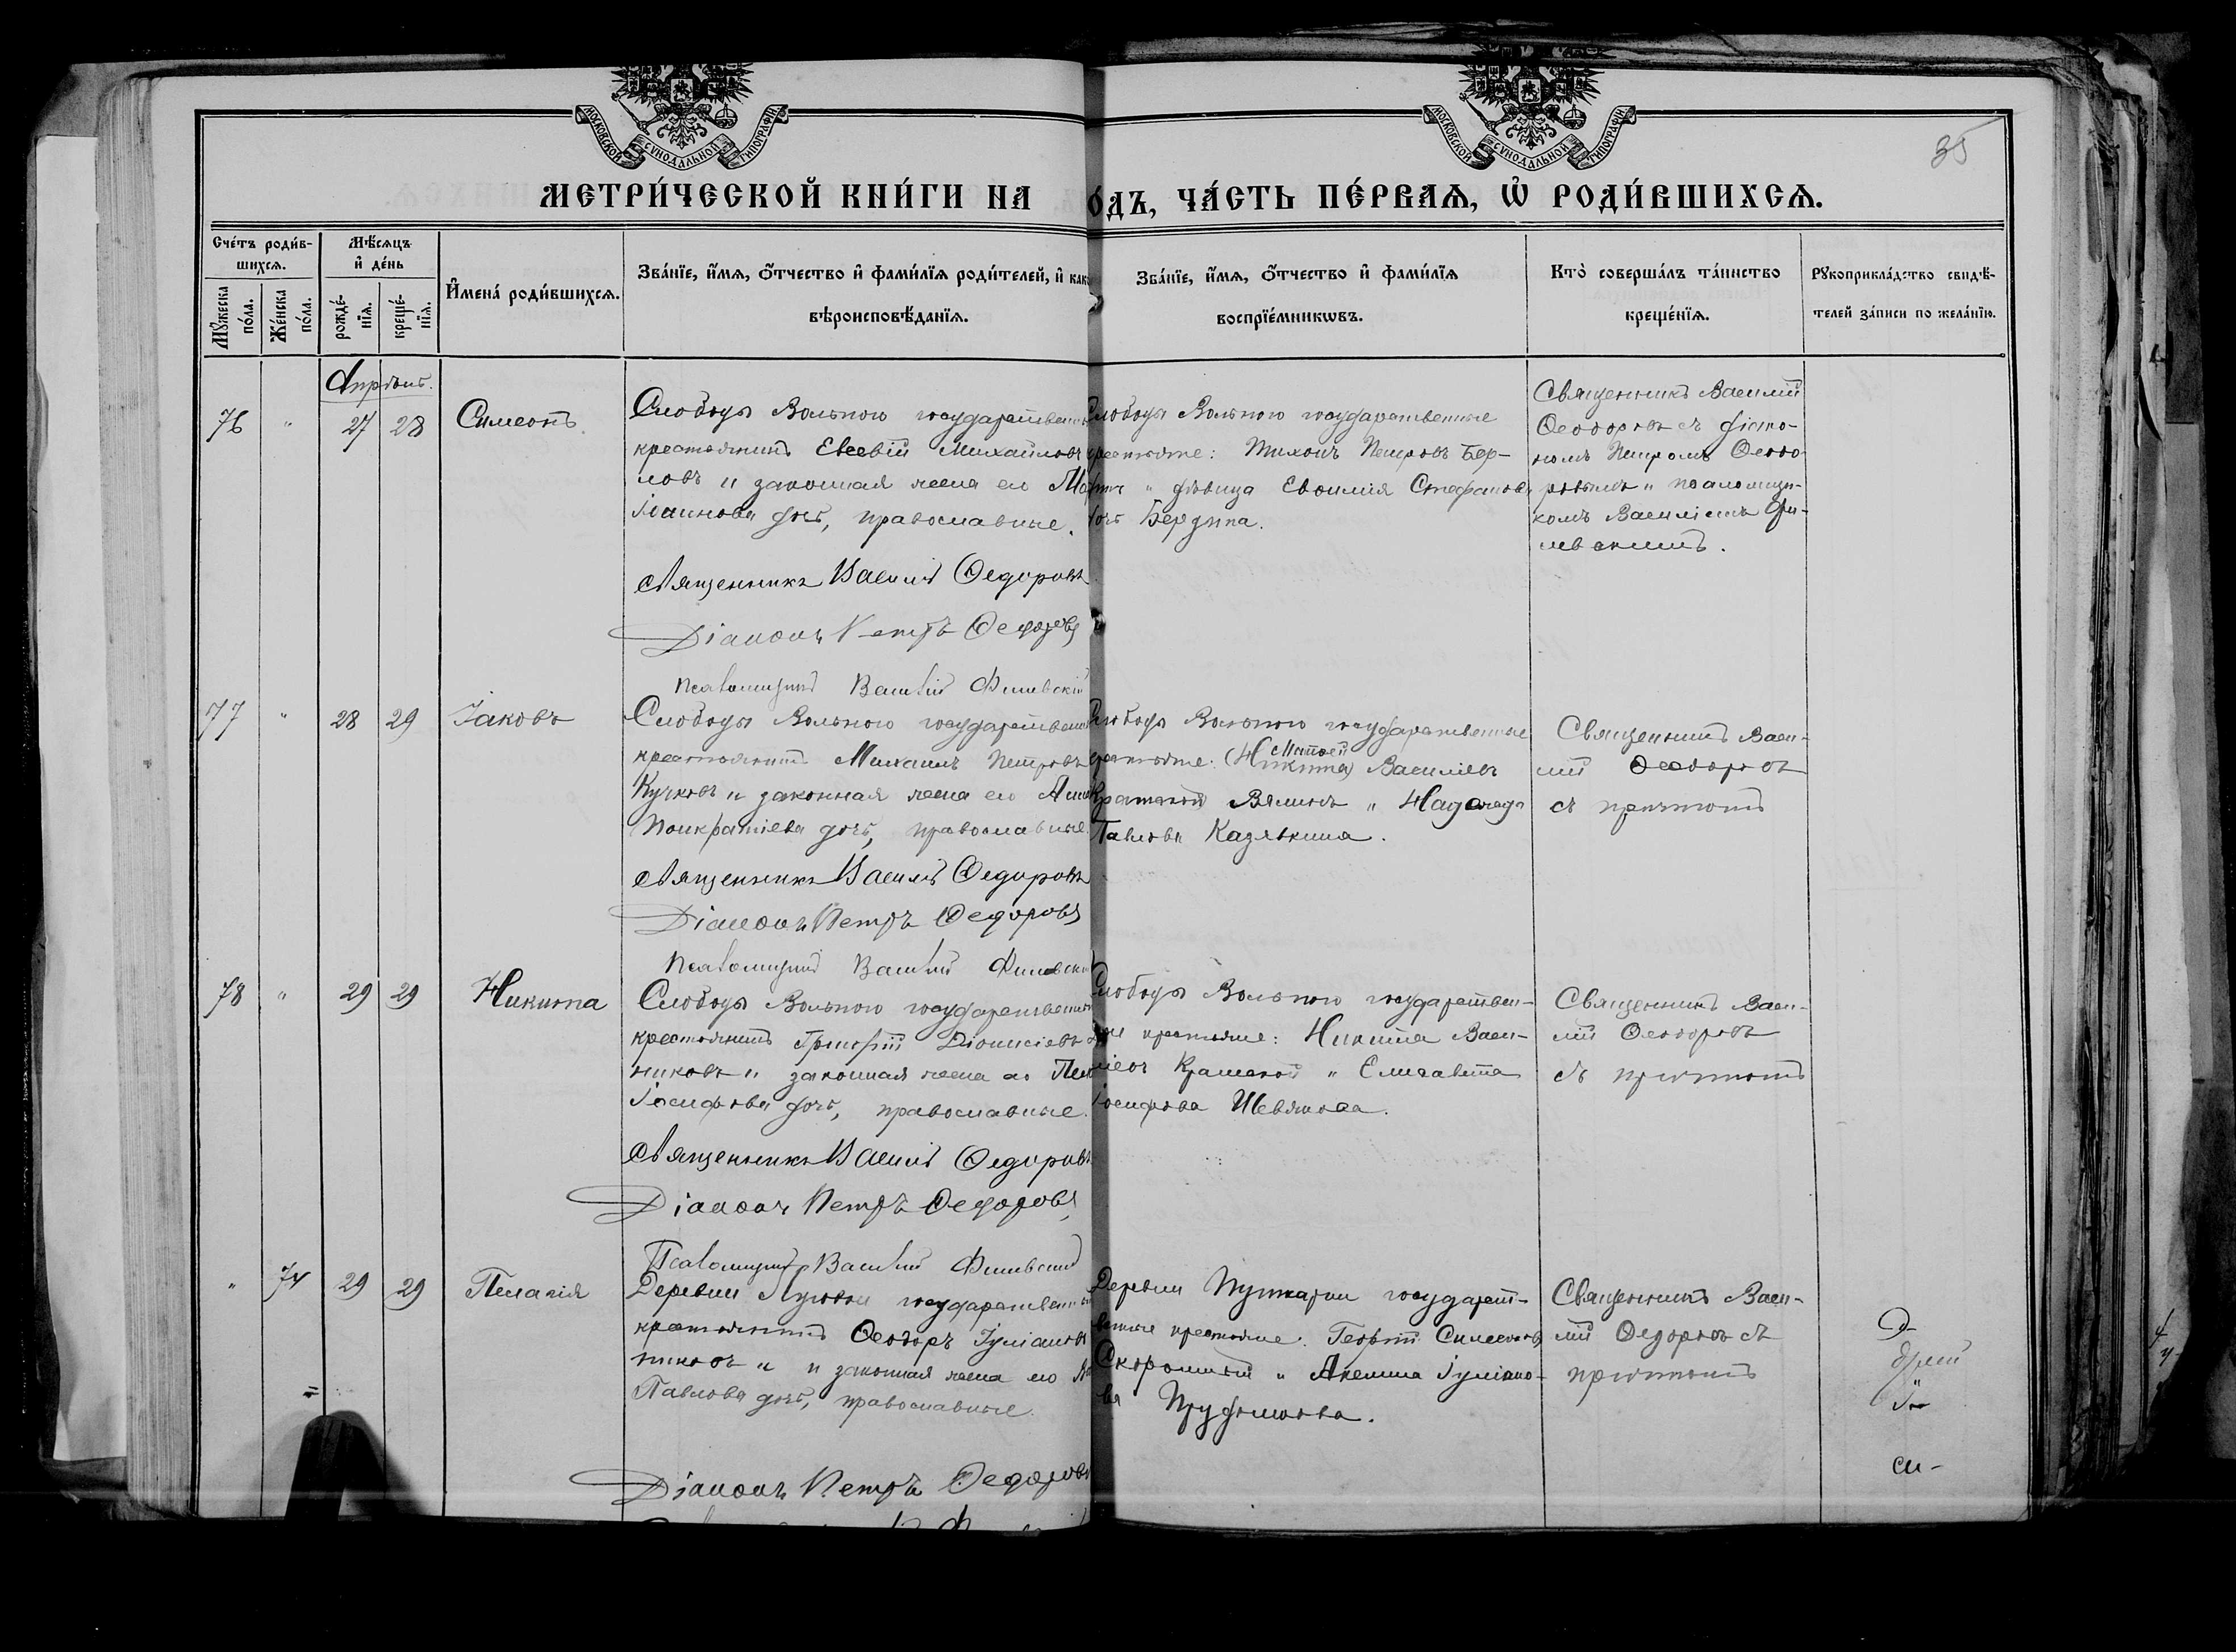 МОСКОВСКОЙ СУНОДАЛЬНОЙ ТИПОГРАФІИ
МОСКОВСКОЙ СУНОДАЛЬНОЙ ТИПОГРАФІИ
35
МЕТРИ́ЧЕСКОЙ КНИ́ГИ НА
О́ДЪ, ЧА́СТЬ ПЕ́РВАѦ, Ѡ҆ РОДИ́ВШИХСѦ.
Сче́тъ роди́в-
шихсѧ.
Мꙋ́жеска по́ла.
Же́нска по́ла.
Мѣ́сѧцъ
и҆ де́нь
рожде́-
нїѧ.
креще́-
нїѧ.
И҆мена́ роди́вшихсѧ.
Зва́нїе, и҆́мѧ, ѻ҆́тчество и҆ фами́лїѧ роди́телей, и҆ како
вѣроисповѣ́данїѧ.
Зва́нїе, и҆́мѧ, ѻ҆́тчество и҆ фами́лїѧ
воспрїе́мникѡвъ.
Кто̀ соверша́лъ та́инство
креще́нїѧ.
Рꙋкоприкла́дство свидѣ́-
телей за́писи по жела́нїю.
Апрѣль.
76 " 27 28 Симеонъ
Слободы Вольного государствен
крестьянинъ Евсевій Михайловъ
ловъ и законная жена его
Іоаннова дочь, православные.
Священникъ Василій Ѳедоровъ
Діаконъ Петръ Ѳедоровъ
Псаломщикъ Василій Филевскій
Слободы Вольного государственные
крестьяне: Тихонъ Петровъ Бер-
и дѣвица Евѳимія Стефанова
дочь Бердина.
Священникъ Василій
Ѳеодоровъ съ діако-
номъ Петромъ Ѳеодо-
ровымъ и псаломщи-
комъ Василіемъ Фи-
левскимъ.
77 " 28 29 Іаковъ
Слободы Вольного государствен
крестьянинъ Михаилъ Петровъ
Кучковъ и законная жена его Анна
Понкратіева дочь, православные.
Священникъ Василій Ѳедоровъ
Діаконъ Петръ Ѳедоровъ
Псаломщикъ Василій Филевскій
Слободы Вольного государственные
крестьяне: (Никита) Матѳей Василіевъ
и Надежда
Павлова Казявкина.
Священникъ Васи-
лій Ѳеодоровъ
съ причтомъ
78 " 29 29 Никита
Слободы Вольного государствен
крестьянинъ Григорій Діонисіевъ
никовъ и законная жена его
Іосифова дочь, православные.
Священникъ Василій Ѳедоровъ
Діаконъ Петръ Ѳедоровъ
Псаломщикъ Василій Филевскій
Слободы Вольного государствен-
ные крестьяне: Никита Васи-
ліевъ и Елисавета
Іосифова Шевякова.
Священникъ Васи-
лій Ѳеодоровъ
съ причтомъ
" 74 29 29 Пелагія
Деревни государственный
крестьянинъ Ѳеодоръ Іуліановъ
никовъ и и законная жена его
Павлова дочь, православные.
Діаконъ Петръ Ѳедоровъ
Деревни Пушкарни государст-
венные крестьяне: Георгій Симеоновъ
и Акелина Іуліано-
ва
Священникъ Васи-
лій Ѳедоровъ съ
причтомъ